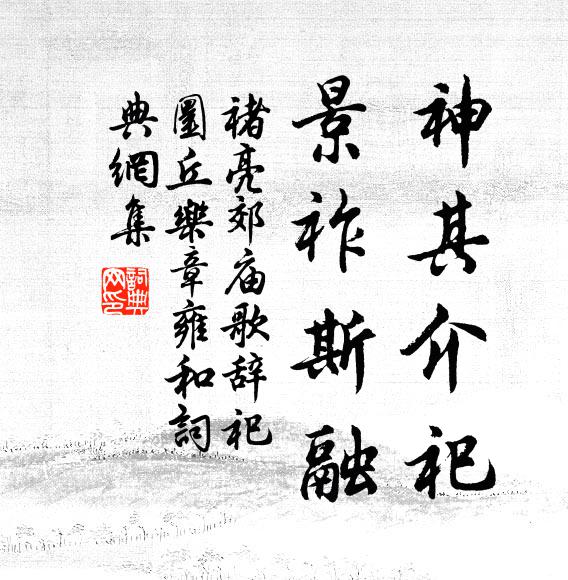 神其介祀
景祚斯融
褚亮郊庙歌辞祀
圜丘樂章雍和詞
典網集
詞典网印